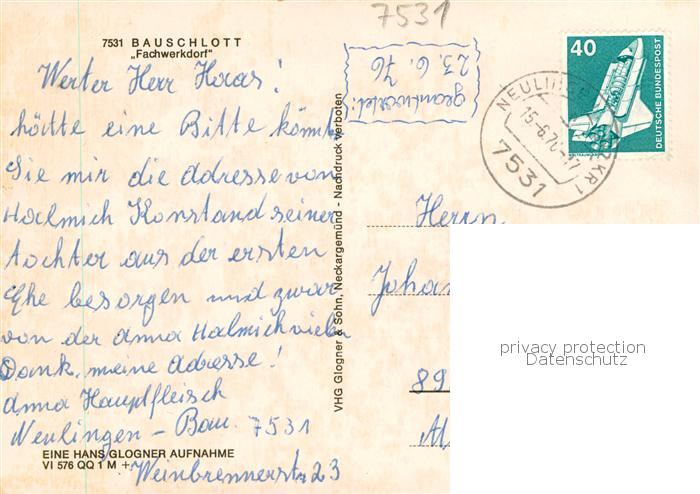 7531
7531 BAUSCHLOTT
„Fachwerkdorf"
Werter Herr Haas!
hätte eine Bitte könnte
Sie mir die adresse von
Halmich Konstand seiner
tochter aus der ersten
Ehe besorgen und zwar
von der anna Halmich vielen
Dank, meine Adresse!
anna Hauptfleisch
Neulingen - Bau. 7531
Weinbrennerstr 23
EINE HANS GLOGNER AUFNAHME
VI 576 QQ 1 M +
VHG Glogner & Sohn, Neckargemünd - Nachdruck verboten
geantwortet:
23. 6. 76
40
DEUTSCHE BUNDESPOST
15.-6.76
7531
Herrn
Johan
89
privacy protection
Datenschutz